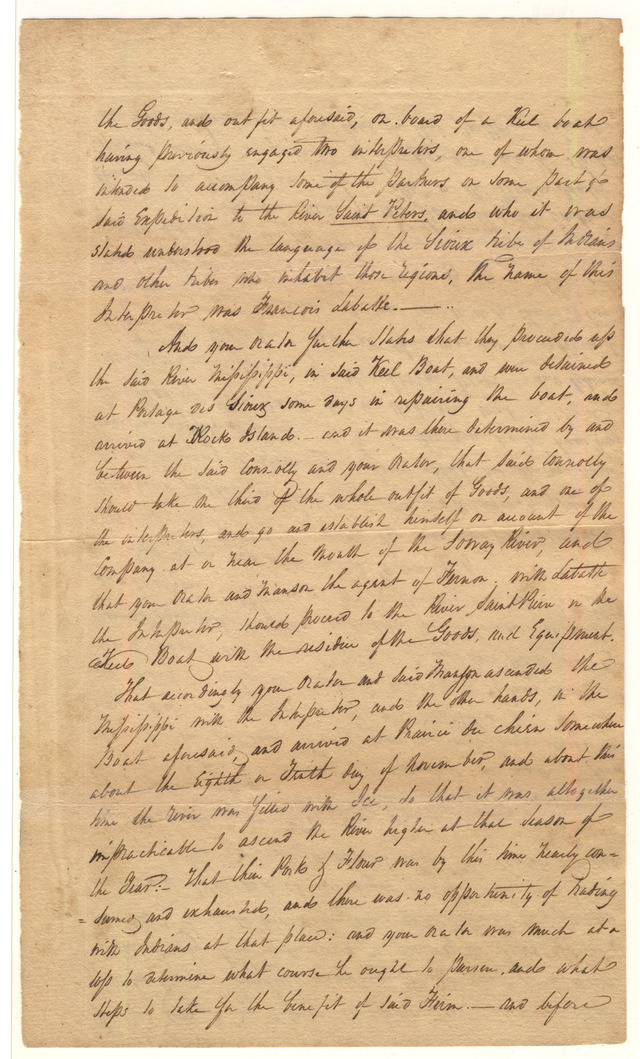 the Goods, and outfit aforesaid, on board of a Keel boat
having previously engaged two interpreters, one of whom was
intended to accompany some of the partners on some part of
said Expedition to the River Saint Peters, and who it was
stated understood the language of the Sioux tribe of Indians
and other tribes who inhabit those regions, the name of this
Interpreter was Francois Labatte. ——
And your orator further states that they proceeded up
the said River Mississippi, in said Keel Boat, and were detained
at Portage des Sioux some days in repairing the boat, and
arrived at Rock Island. – and it was there determined by and
between the said Connolly and your orator, that said Connolly
should take the third of the whole outfit of Goods, and one of
the interpreters, and go and establish himself on account of the
Company at or near the Mouth of the Ioway River, and
that your Orator and Manson the agent of Vernon, with Labatte
the Interpreter, should proceed to the River Saint Pierre in the
Keel Boat with the residue of the Goods, and Equipment.
That accordingly your Orator and said Manson ascended the
Mississippi with the Interpreter, and the other hands, in the
Boat aforesaid, and arrived at Prairie du chien somewhere
about the Eighth or Tenth day of November, and about this
time the river was filled with Ice, so that it was altogether
impracticable to ascend the River higher at that season of
the Year:– That their Pork & Flour was by this time nearly con=
=sumed and exhausted, and there was no opportunity of trading
with Indians at that place: and your orator was much at a
loss to determine what course he ought to pursue, and what
steps to take for the benefit of said Firm. — and before